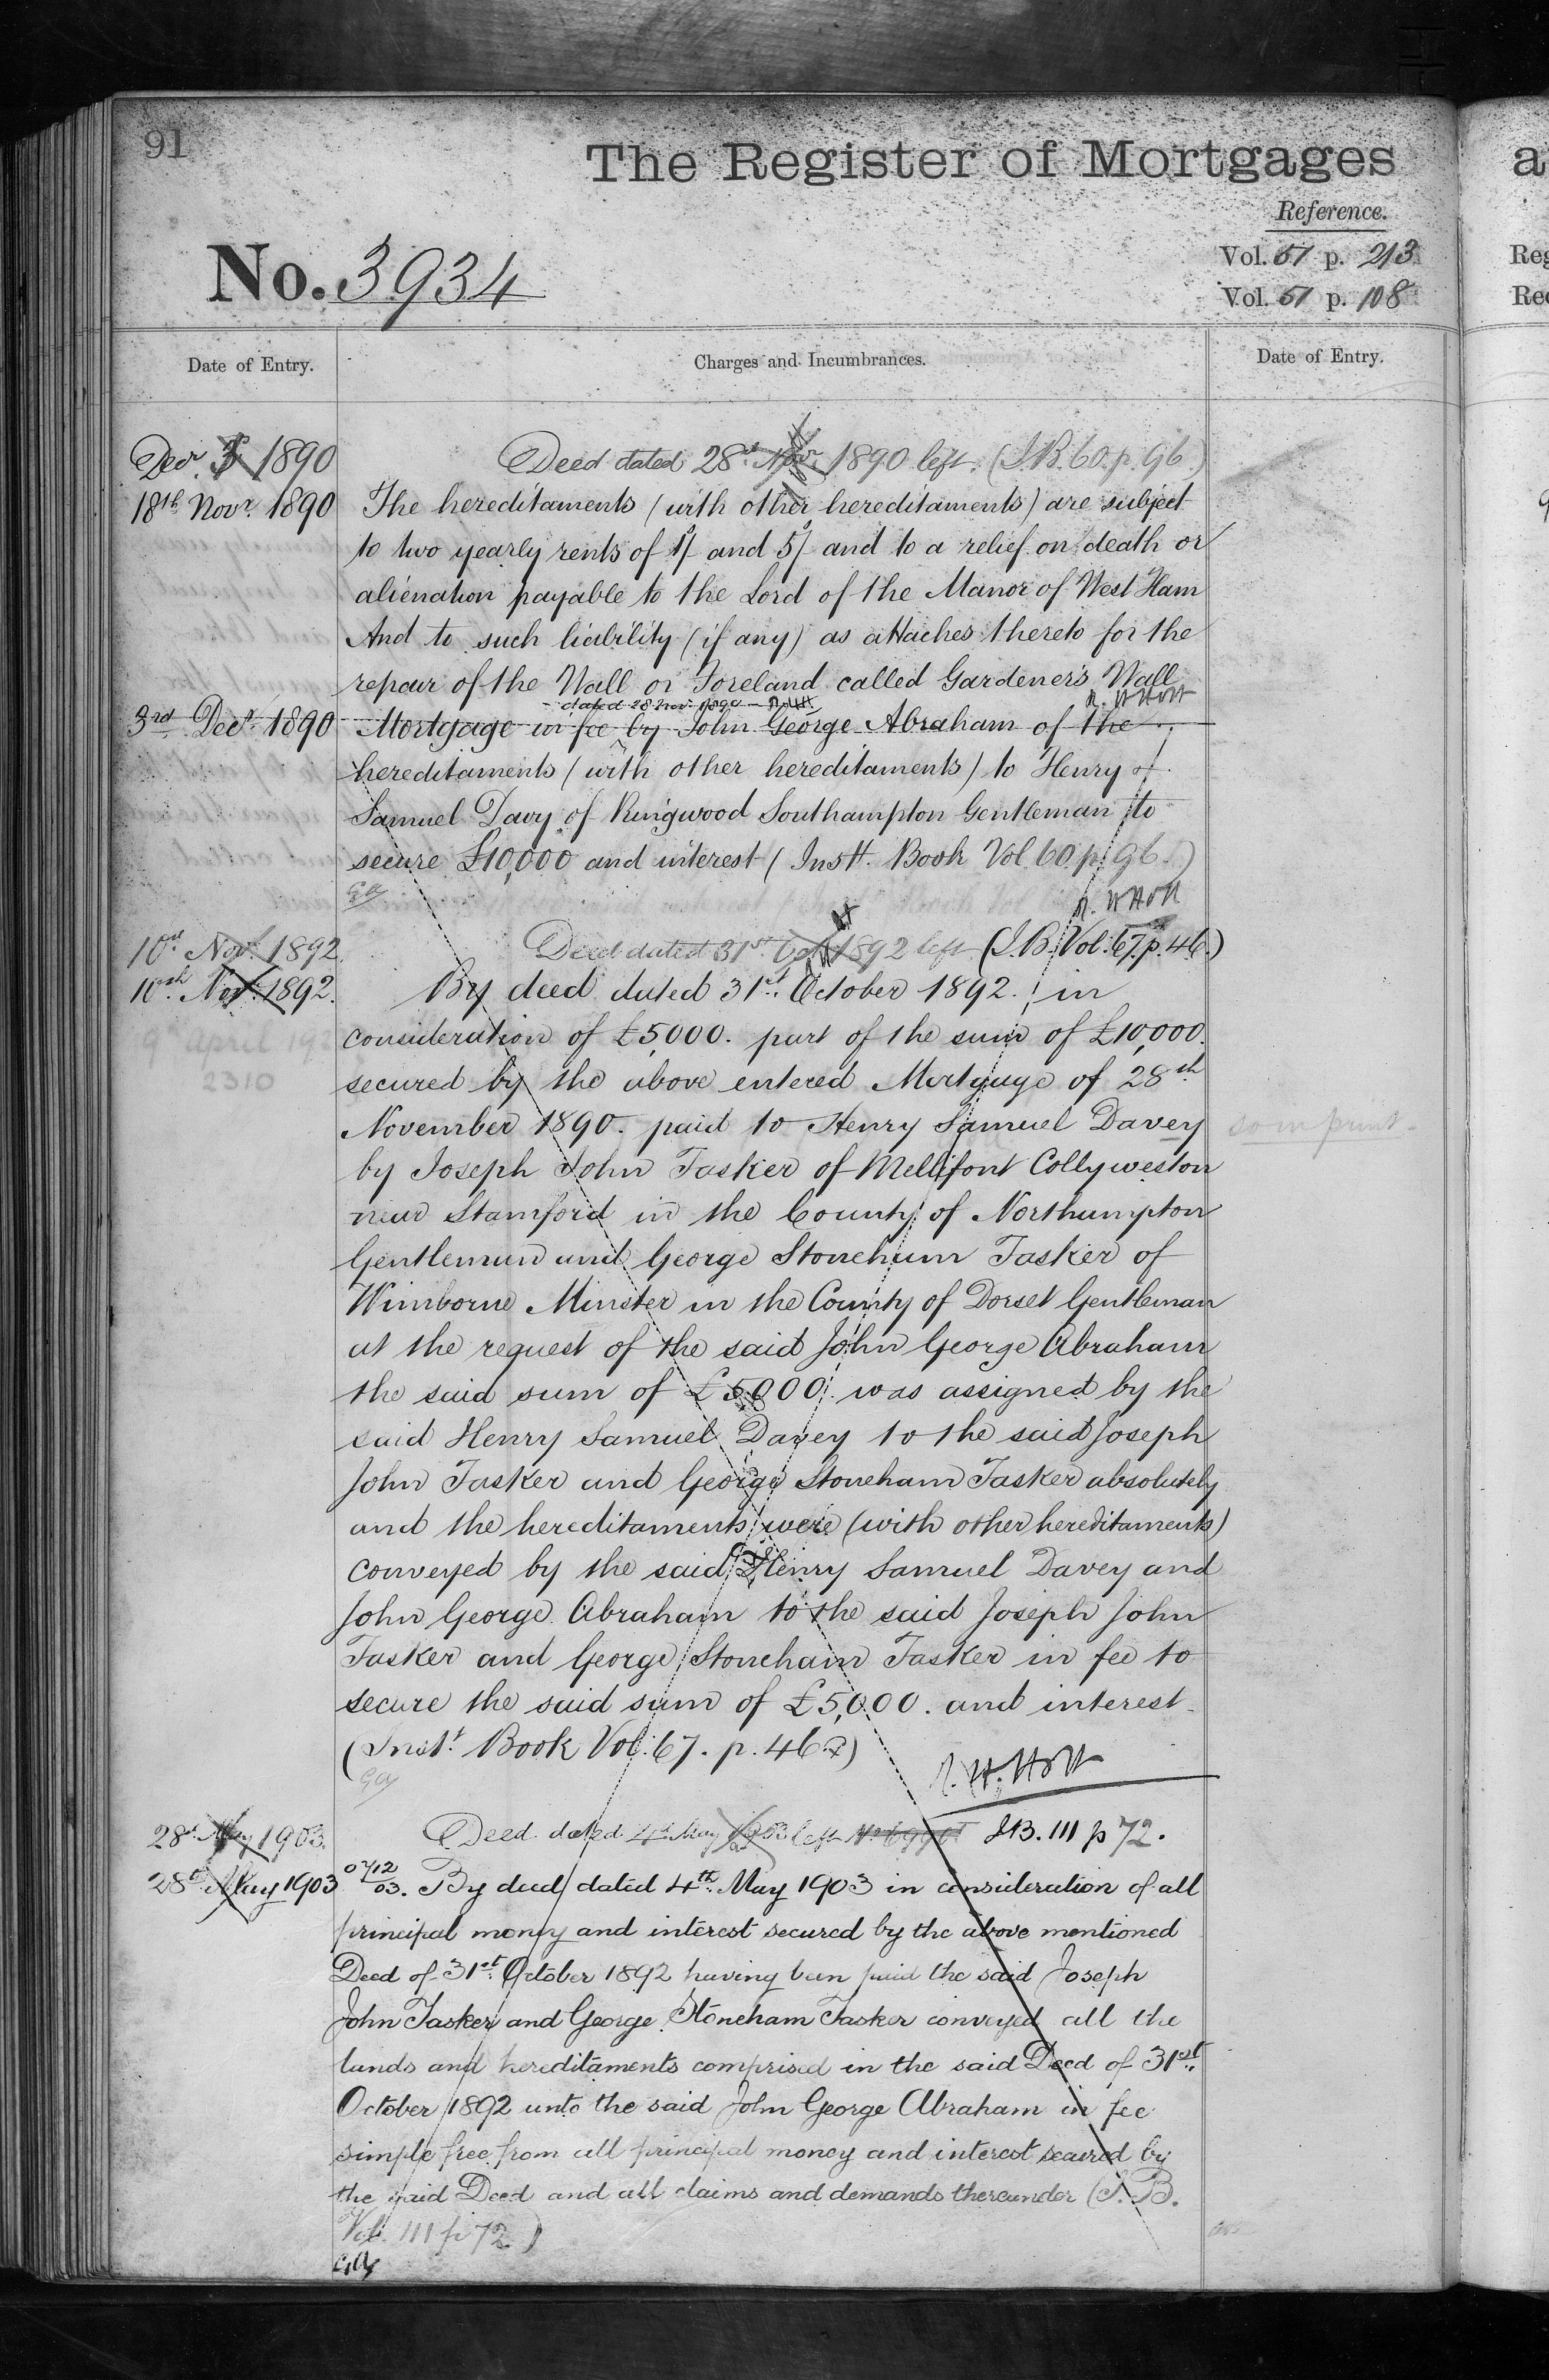 91
The Register of Mortgages
Reference.
No. 3934
Vol. 51 p. 213
Vol. 51 p. 108
Date of Entry.
Charges and Incumbrances.
Date of Entry.
Decr. 3 1890 Deed dated 28th Nov. 1890 left. (I.B. 60. p. 96)
18th Novr. 1890 The hereditaments (with other hereditaments) are subject
to two yearly rents of 1/ and 5/ and to a relief on death or
alienation payable to the Lord of the Manor of West Ham
And to such liability (if any) as attaches thereto for the
repair of the Wall or Foreland called Gardener's Wall
R. H. Holt
dated 28 Nov. 1890 - R.H.H.
3rd Decr. 1890 Mortgage in fee by John George Abraham of the
hereditaments (with other hereditaments) to Henry
Samuel Davy of Ringwood Southampton Gentleman to
secure £10,000 and interest (Inst. Book Vol 60 p. 96.)
GA
R. H. Holt
10th Novr. 1892. Deed dated 31st Oct. 1892 left (I.B. Vol. 67. p. 46.)
10th Nov. 1892. By deed dated 31st. October 1892. in
9 April 19
2310
consideration of £5,000. part of the sum of £10,000.
secured by the above entered Mortgage of 28th
November 1890. paid to Henry Samuel Davey
by Joseph John Tasker of Mellifont Collyweston
near Stamford in the County of Northampton
Gentleman and George Stoneham Tasker of
Wimborne Minster in the County of Dorset Gentleman
at the request of the said John George Abraham
the said sum of £5,000. was assigned by the
said Henry Samuel Davey to the said Joseph
John Tasker and George Stoneham Tasker absolutely
and the hereditaments were (with other hereditaments)
conveyed by the said Henry Samuel Davey and
John George Abraham to the said Joseph John
Tasker and George Stoneham Tasker in fee to
secure the said sum of £5,000. and interest.
(Inst. Book Vol. 67. p. 46.)
GA
R. H. Holt
28th May 1903. Deed dated 4th May 1903 left No 6990 I.B. 111 p 72.
28th May 1903 0712/03. By deed dated 4th May 1903 in consideration of all
principal money and interest secured by the above mentioned
Deed of 31st. October 1892 having been paid the said Joseph
John Tasker and George Stoneham Tasker conveyed all the
lands and hereditaments comprised in the said Deed of 31st.
October 1892 unto the said John George Abraham in fee
simple free from all principal money and interest secured by
the said Deed and all claims and demands thereunder (I.B.
Vol. 111 p 72)
GA